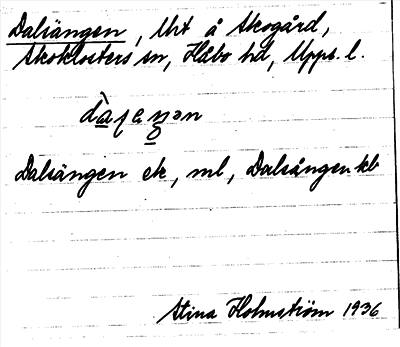 Dalsängen, Urt å Skogård,
Skoklosters sn, Håbo hd, Upps. l.
Dalsängen ek, ml, Dalsängen kb
Stina Holmström 1936